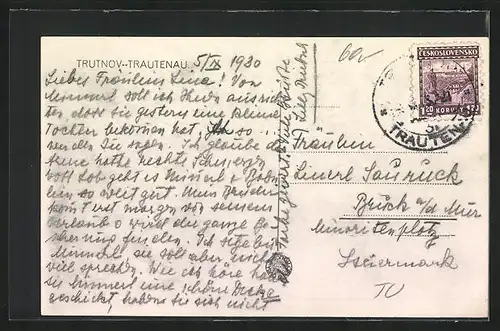 TRUTNOV--TRAUTENAU 5/IX 1930
Liebes Fräulein Liesa! Von
Mimmerl soll ich Ihnen ausrich
ten, dass sie gestern eine kleine
Tochter bekommen hat, so
werden Sie sagen. Ich glaube die
Arme hatte rechte Schmerzen
Gott Lob geht es Mimerl &
lein so weit gut. Mein Bruder
kommt erst morgen von seinem
Urlaub & wird die ganze Be
scherung finden. Ich sitze bei
Mimmerl, sie soll aber nicht
viel sprechen. Wie ich höre hat
sie Ihnen eine schöne Decke
geschickt, haben Sie sich nicht
gefreut? Viele Grüsse
Lilly Deutsch
60
ČESKOSLOVENSKO
1.20 KORUNY 1.20
TRAUTENAU
Fräulein
Linerl
Bruck a/d Mur
Minoritenplatz
Steiermark